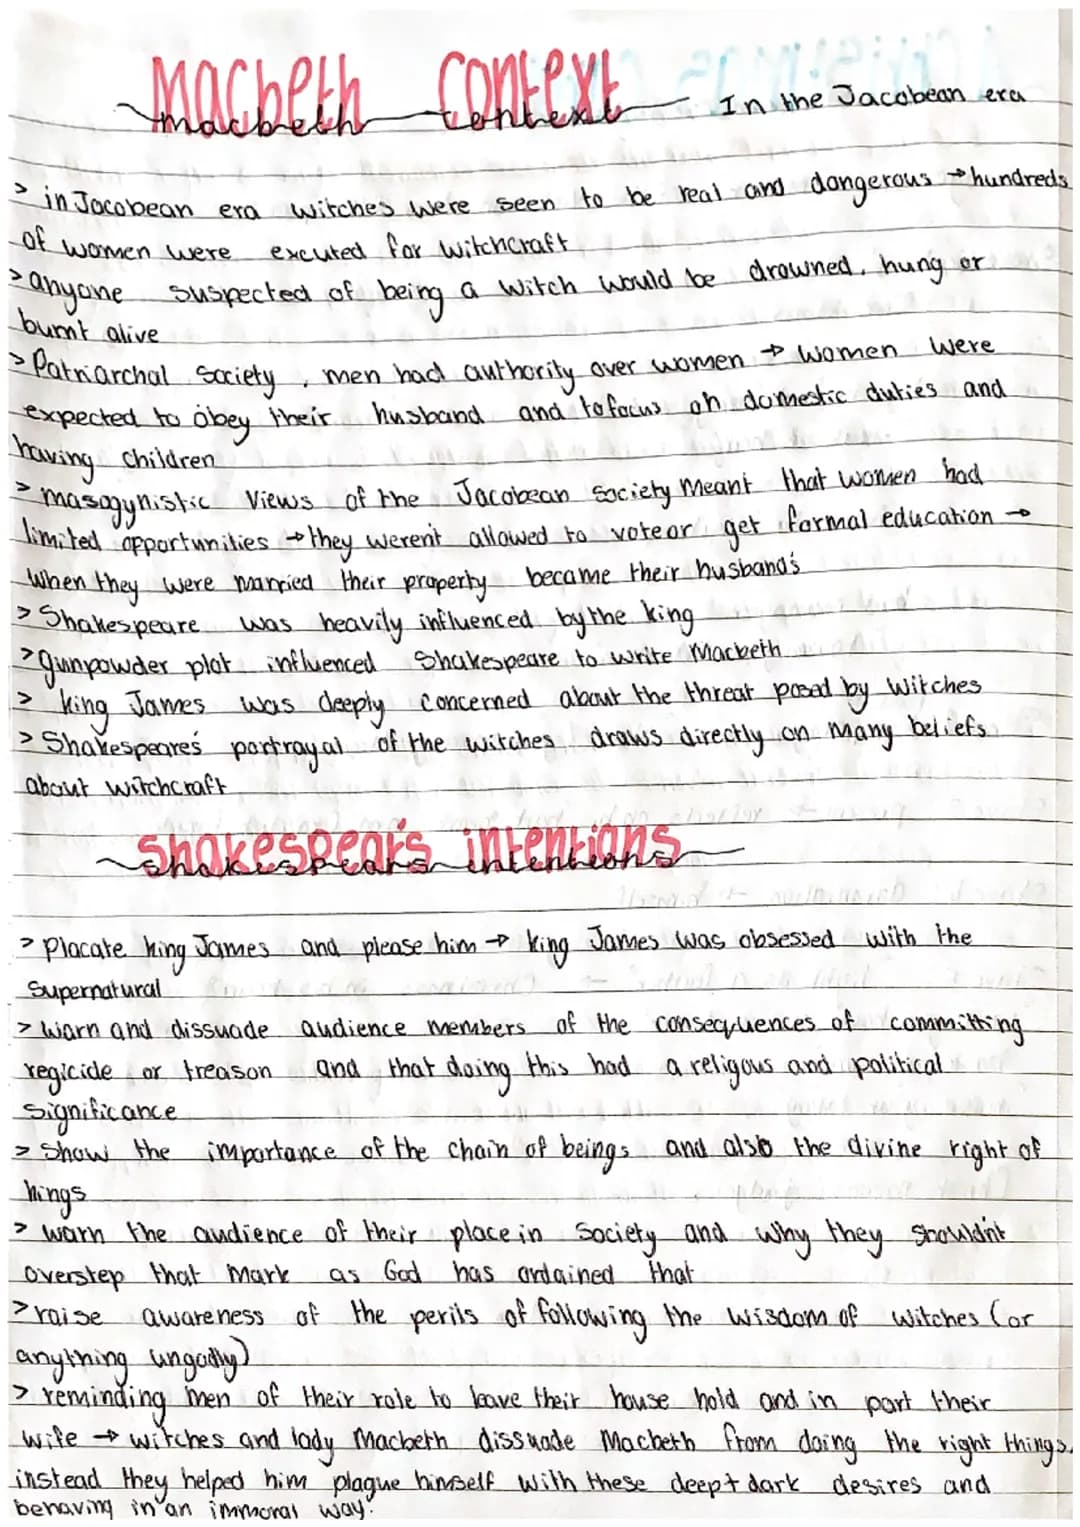 Macbeth Context
macbeth context In the Jacobean era
> in Jacobean era witches were seen to be real and dangerous → hundreds
of women were excuted for witchcraft
> anyone suspected of being a witch would be drowned, hung or
burnt alive
> Patriarchal society, men had authority over women → women were
expected to obey their husband and to focus on domestic duties and
having children
> masogynistic views of the Jacobean society meant that women had
limited opportunities → they weren't allowed to vote or get formal education →
when they were married their property became their husband's
> Shakespeare was heavily influenced by the king
> gunpowder plot influenced Shakespeare to write Macbeth
> king James was deeply concerned about the threat posed by witches
> Shakespeare's portrayal of the witches draws directly on many beliefs
about witchcraft
shakespear's intentions
shakespears intentions
> Placate king James and please him → king James was obsessed with the
supernatural
> warn and dissuade audience members of the consequences of committing
regicide or treason and that doing this had a religous and political
significance
> Show the importance of the chain of beings and also the divine right of
kings
> warn the audience of their place in society and why they shouldn't
overstep that mark as God has ordained that
> raise awareness of the perils of following the wisdom of witches (or
anything ungodly)
> reminding men of their role to leave their house hold and in part their
wife → witches and lady Macbeth dissuade Macbeth from doing the right things,
instead they helped him plague himself with these deep + dark desires and
behaving in an immoral way.